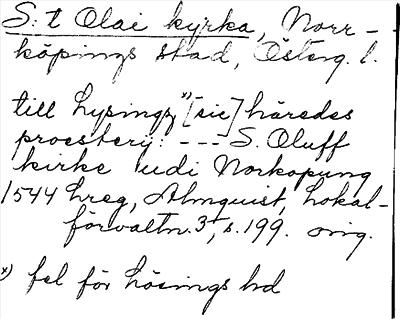 S:t Olai kyrka, Norr-
köpings stad, Österg. l.
till Lysings x) [sic] häredes
proestery: --- S. Oluff
kirke udi Norkopung
1544 hreg, Almquist, Lokal-
förvaltn. 3, s. 199. orig.
x) fel för Lösings hd